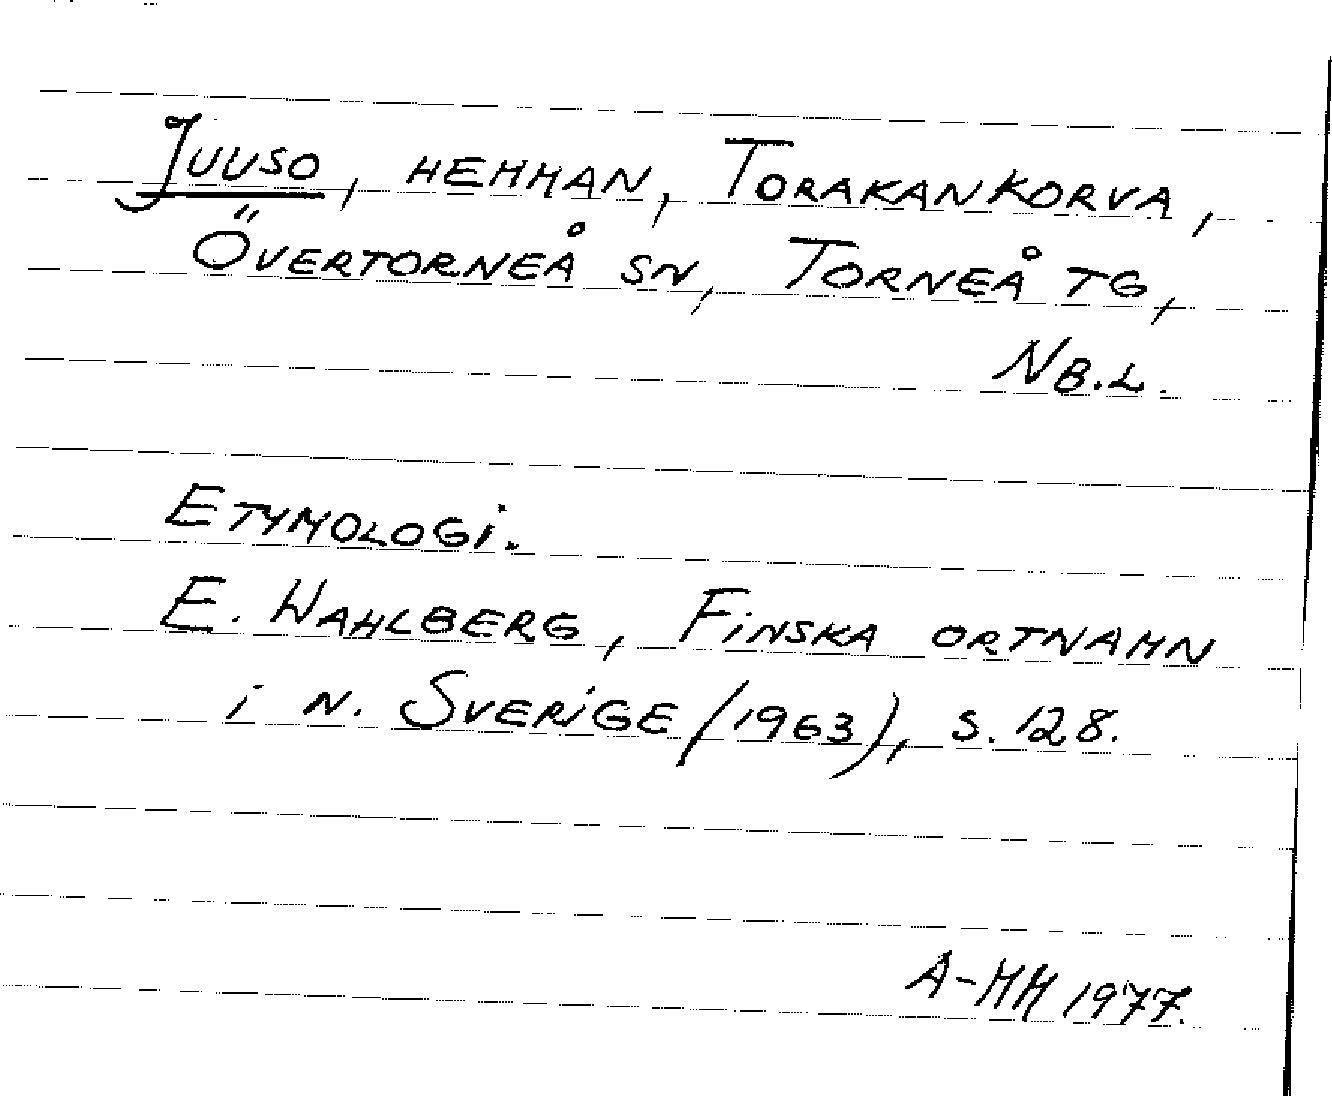 Juuso, hemman, Torakankorva,
Övertorneå sn, Torneå tg,
Nb.l.
Etymologi.
E. Wahlberg, Finska ortnamn
i n. Sverige (1963), s. 128.
A-MM 1977.